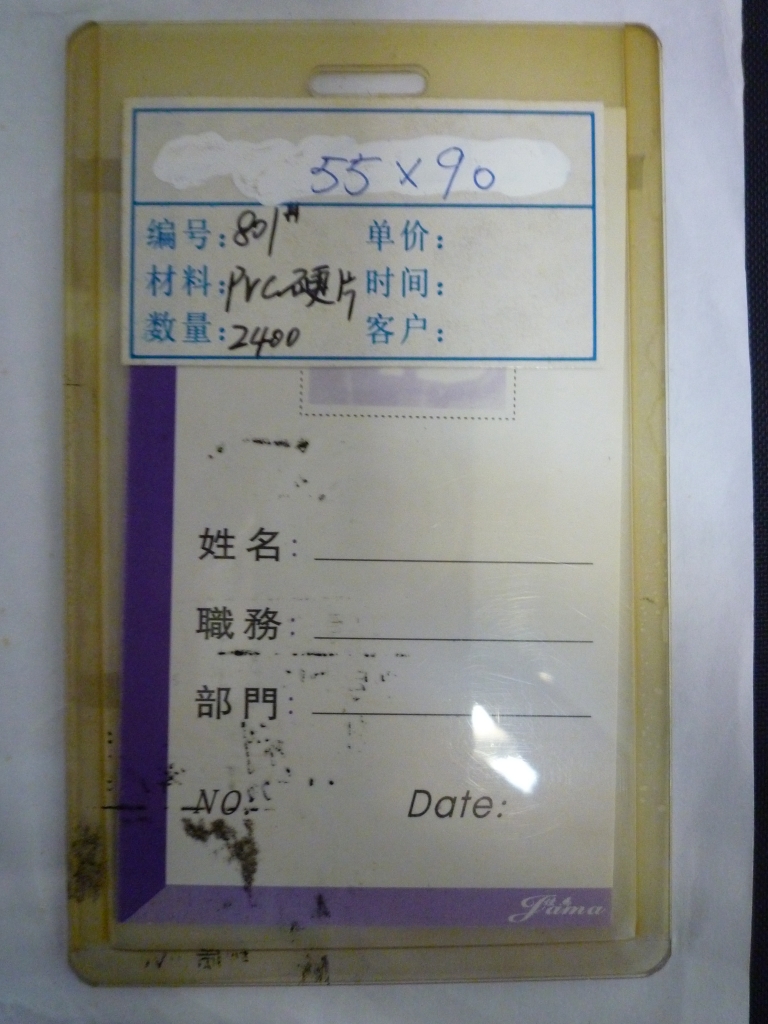 55×90
编号: 801# 单价:
材料: PVC硬片 时间:
数量: 2400 客户:
姓名:
職務:
部門:
NO: Date:
Jama